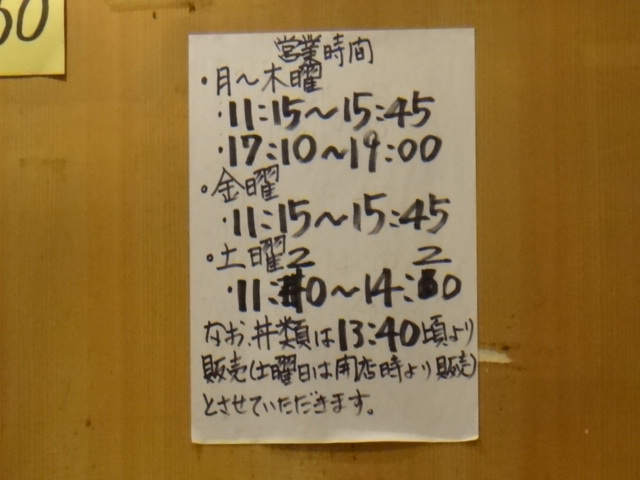 50
営業時間
・月〜木曜
・11:15〜15:45
・17:10〜19:00
・金曜
・11:15〜15:45
・土曜
・11:20〜14:20
なお、丼類は13:40頃より
販売(土曜日は開店時より販売)
とさせていただきます。